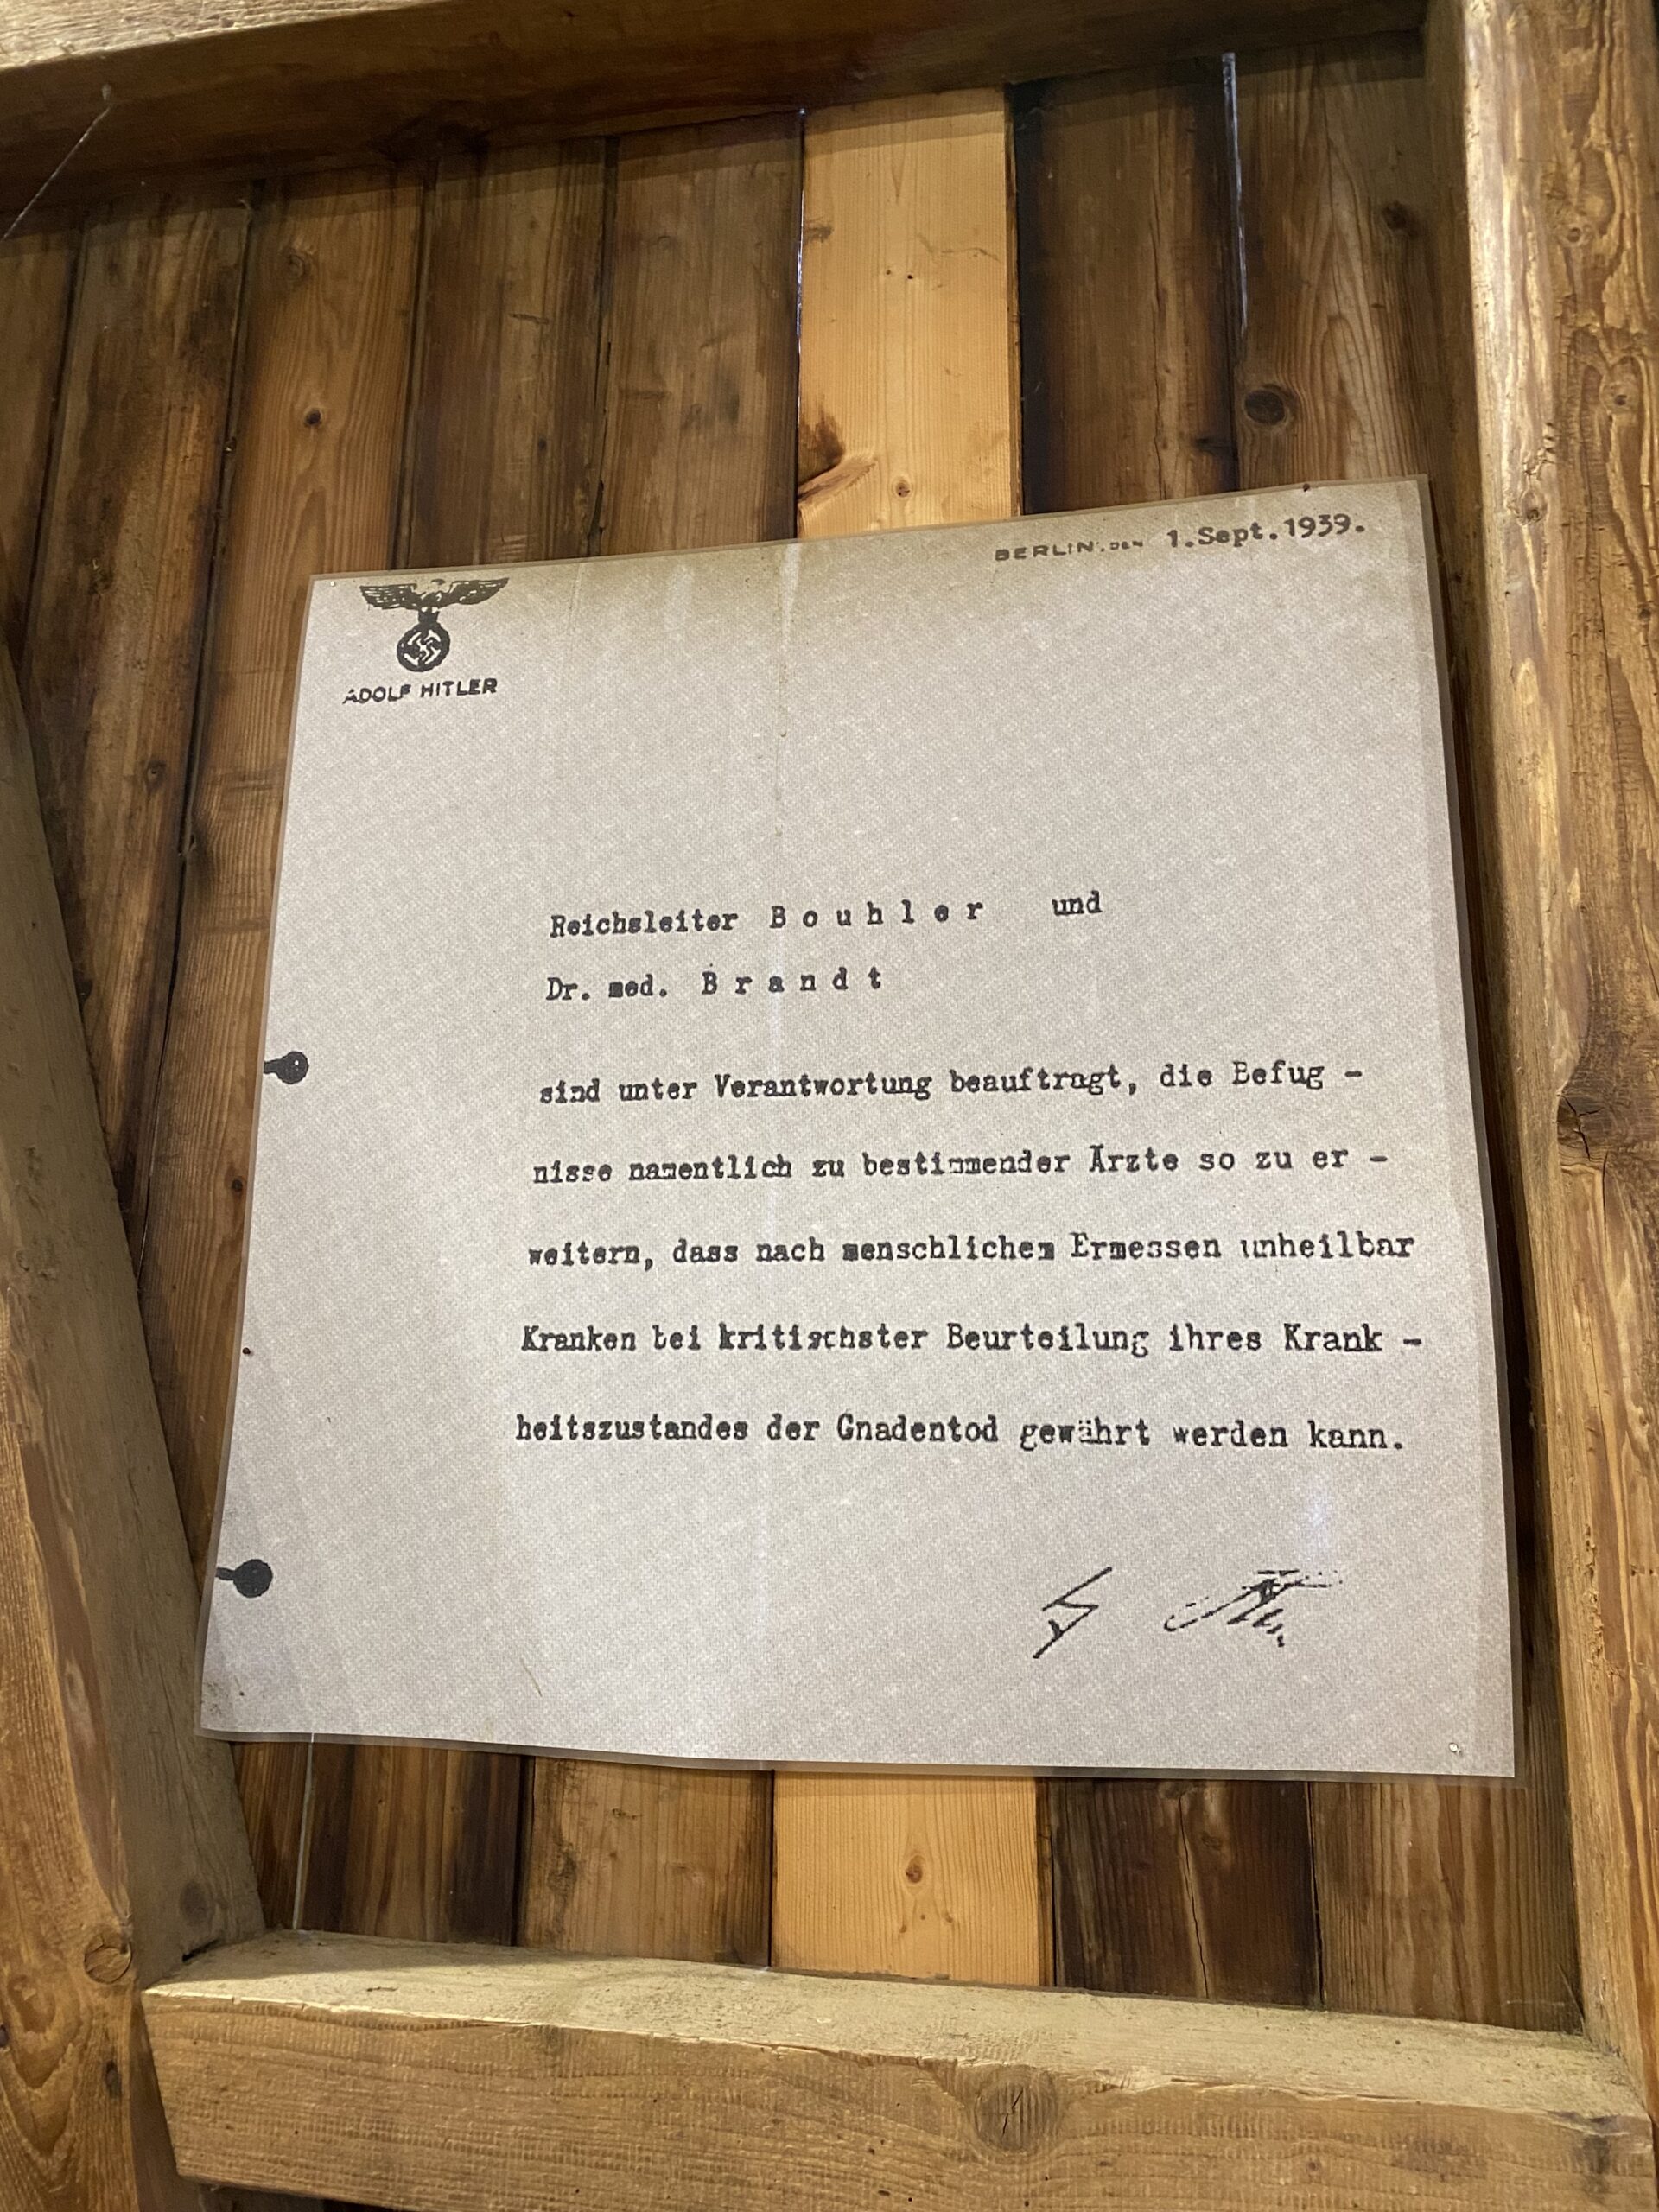 BERLIN, DEN 1.Sept.1939.
ADOLF HITLER
Reichsleiter B o u h l e r und
Dr. med. B r a n d t
sind unter Verantwortung beauftragt, die Befug -
nisse namentlich zu bestimmender Ärzte so zu er -
weitern, dass nach menschlichem Ermessen unheilbar
Kranken bei kritischster Beurteilung ihres Krank -
heitszustandes der Gnadentod gewährt werden kann.